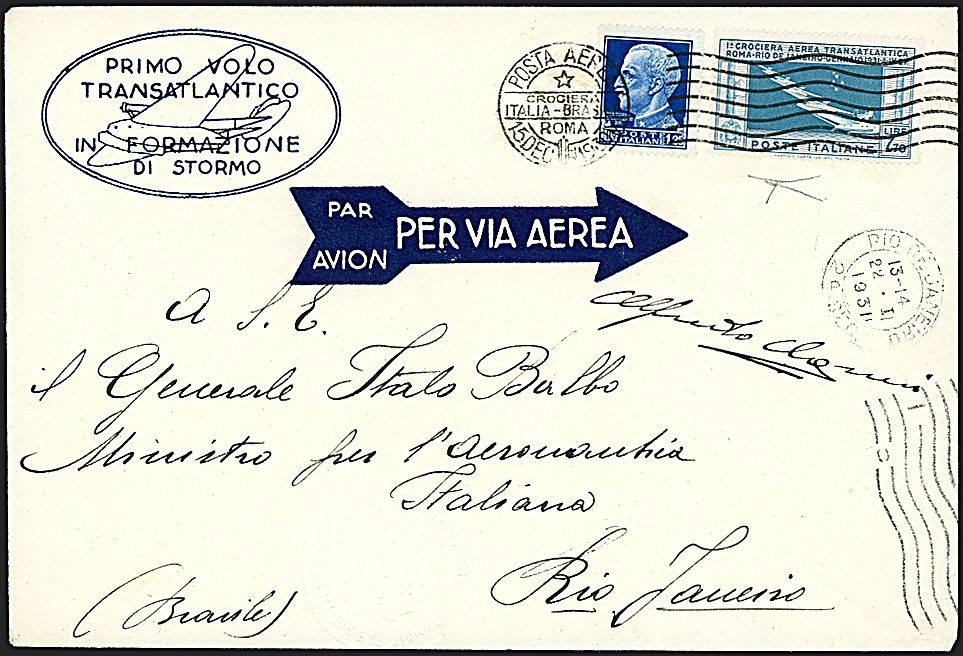 PRIMO VOLO
TRANSATLANTICO
IN FORMAZIONE
DI STORMO
POSTA AEREA
CROCIERA
ITALIA-BRAS
ROMA
15 DEC
POSTE
ITALIANE
1ª CROCIERA AEREA TRANSATLANTICA
ROMA-RIO DE JANEIRO-GENNAIO 1931-A.IX E.F.
LIRE
7,70
POSTE ITALIANE
PAR
AVION
PER VIA AEREA
RIO DE JANEIRO
13-14
22.II
1931
A S. E.
il Generale Italo Balbo
Ministro per l'aeronautica
Italiana
Rio Janeiro
(Brasile)